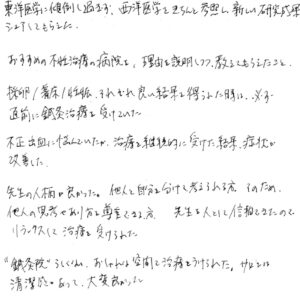 東洋医学に傾倒し過ぎず、西洋医学もきちんと考慮し、新しい研究成果
シェアしてもらえた。
おすすめの不妊治療の病院を、理由を説明しつつ、教えてもらえたこと。
採卵/着床/妊娠、それぞれ良い結果を得られた時は、必ず
直前に鍼灸治療を受けていた
不正出血に悩んでいたが、治療を継続的に受けた結果、症状が
改善した。
先生の人柄が良かった。他人と自分を分けて考えられる方 そのため、
他人の思考やあり方を尊重できる方。 先生を人として信頼できたので
リラックスして治療を受けられた
"鍼灸院"らしくない、おしゃれな空間で治療をうけられた。サロンは
清潔感があって、大変良かった